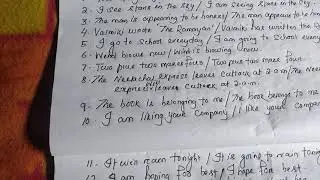 2- I see stars in the sky / I am seeing stars in the sky.
3- The man is appearing to be honest / The man appears to be hones
4. Valmiki wrote 'The Ramayan' / Valmiki has written the
5. I go to school everyday / I am going to school every
6. Wind blows now / Wind is blowing now
7. Two plus two makes four / Two plus two make four.
8- The Neelachal express leaves Cuttack at 2 a.m / The Neel
express will leaves cuttack at 2 a.m.
9- The book is belonging to me / The book belongs to me
10. I am liking your company / I like your company
11. It will rain tonight / It is going to rain tonigh
12. I am hoping for best / I hope for best